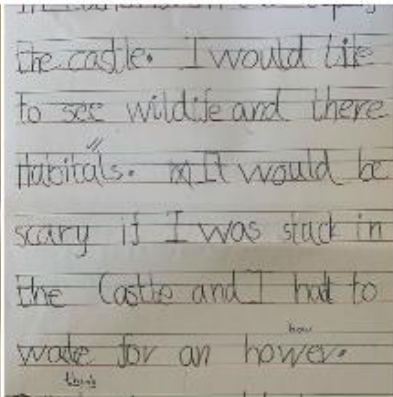 the castle. I would like
to see wildlife and there
Habitats. It would be
scary if I was stuck in
the Castle and I had to
wate for an hower.